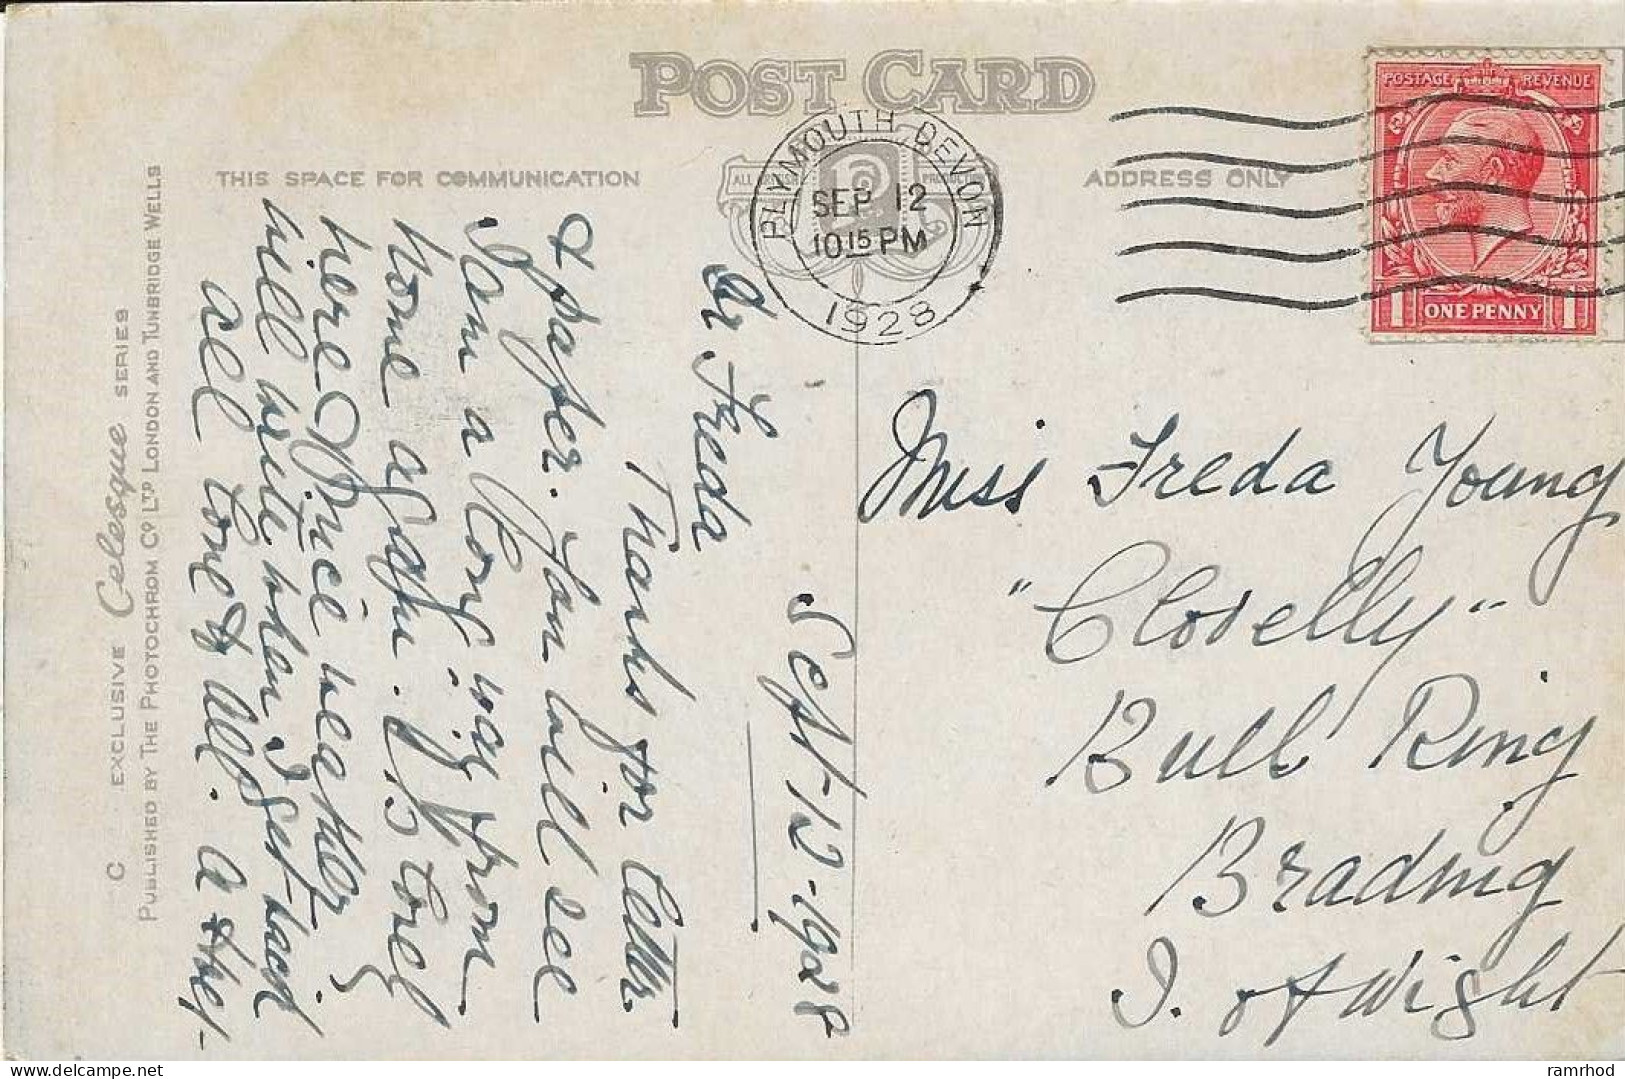 POST CARD
THIS SPACE FOR COMMUNICATION
ADDRESS ONLY
PLYMOUTH DEVON
SEP 12
10 15 PM
1928
POSTAGE REVENUE
1 ONE PENNY 1
ALL BRITISH PRODUCTION
C EXCLUSIVE Celesque SERIES
PUBLISHED BY THE PHOTOCHROM CO LTD LONDON AND TUNBRIDGE WELLS
Sept-12-1928
Dr Freda
Thanks for letter
& paper. You will see
I am a long way from
home again. Its lovely
here & nice weather
will write when I get back
all love to all. A they
Miss Freda Young
"Clovelly"
Bull Ring
Brading
I. of Wight
ramrhod